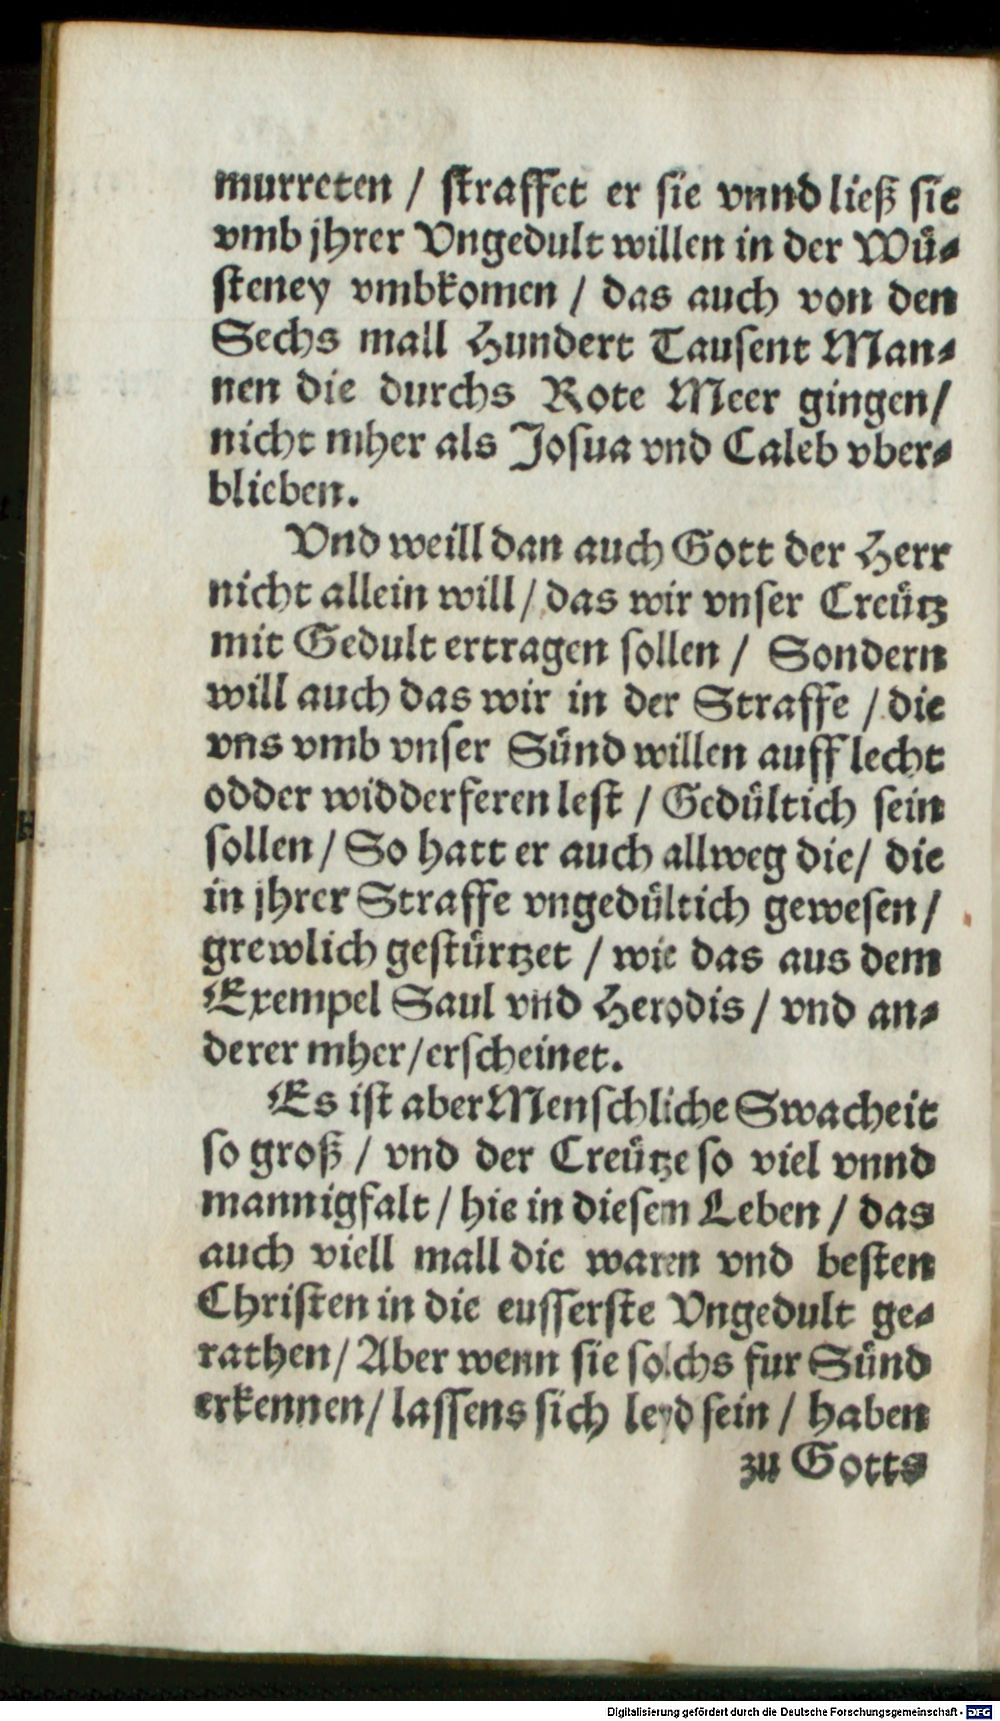 murreten / straffet er sie vnnd ließ sie
vmb jhrer Vngedult willen in der Wuͤ-
steney vmbkomen / das auch von den
Sechs mall Hundert Tausent Man-
nen die durchs Rote Meer gingen/
nicht mher als Josua vnd Caleb vber-
blieben.
Vnd weill dan auch Gott der Herr
nicht allein will / das wir vnser Creuͤtz
mit Gedult ertragen sollen / Sondern
will auch das wir in der Straffe / die
vns vmb vnser Suͤnd willen auff lecht
odder widderferen lest / Geduͤltich sein
sollen / So hatt er auch allweg die/ die
in jhrer Straffe vngeduͤltich gewesen /
grewlich gestuͤrtzet / wie das aus dem
Exempel Saul vnd Herodis / vnd an-
derer mher/erscheinet.
Es ist aber Menschliche Swacheit
so groß / vnd der Creuͤtze so viel vnnd
mannigfalt / hie in diesem Leben / das
auch viell mall die waren vnd besten
Christen in die eusserste Vngedult ge-
rathen / Aber wenn sie solchs fur Suͤnd
erkennen / lassens sich leyd sein / haben
zu Gotts
Digitalisierung gefördert durch die Deutsche Forschungsgemeinschaft - DFG